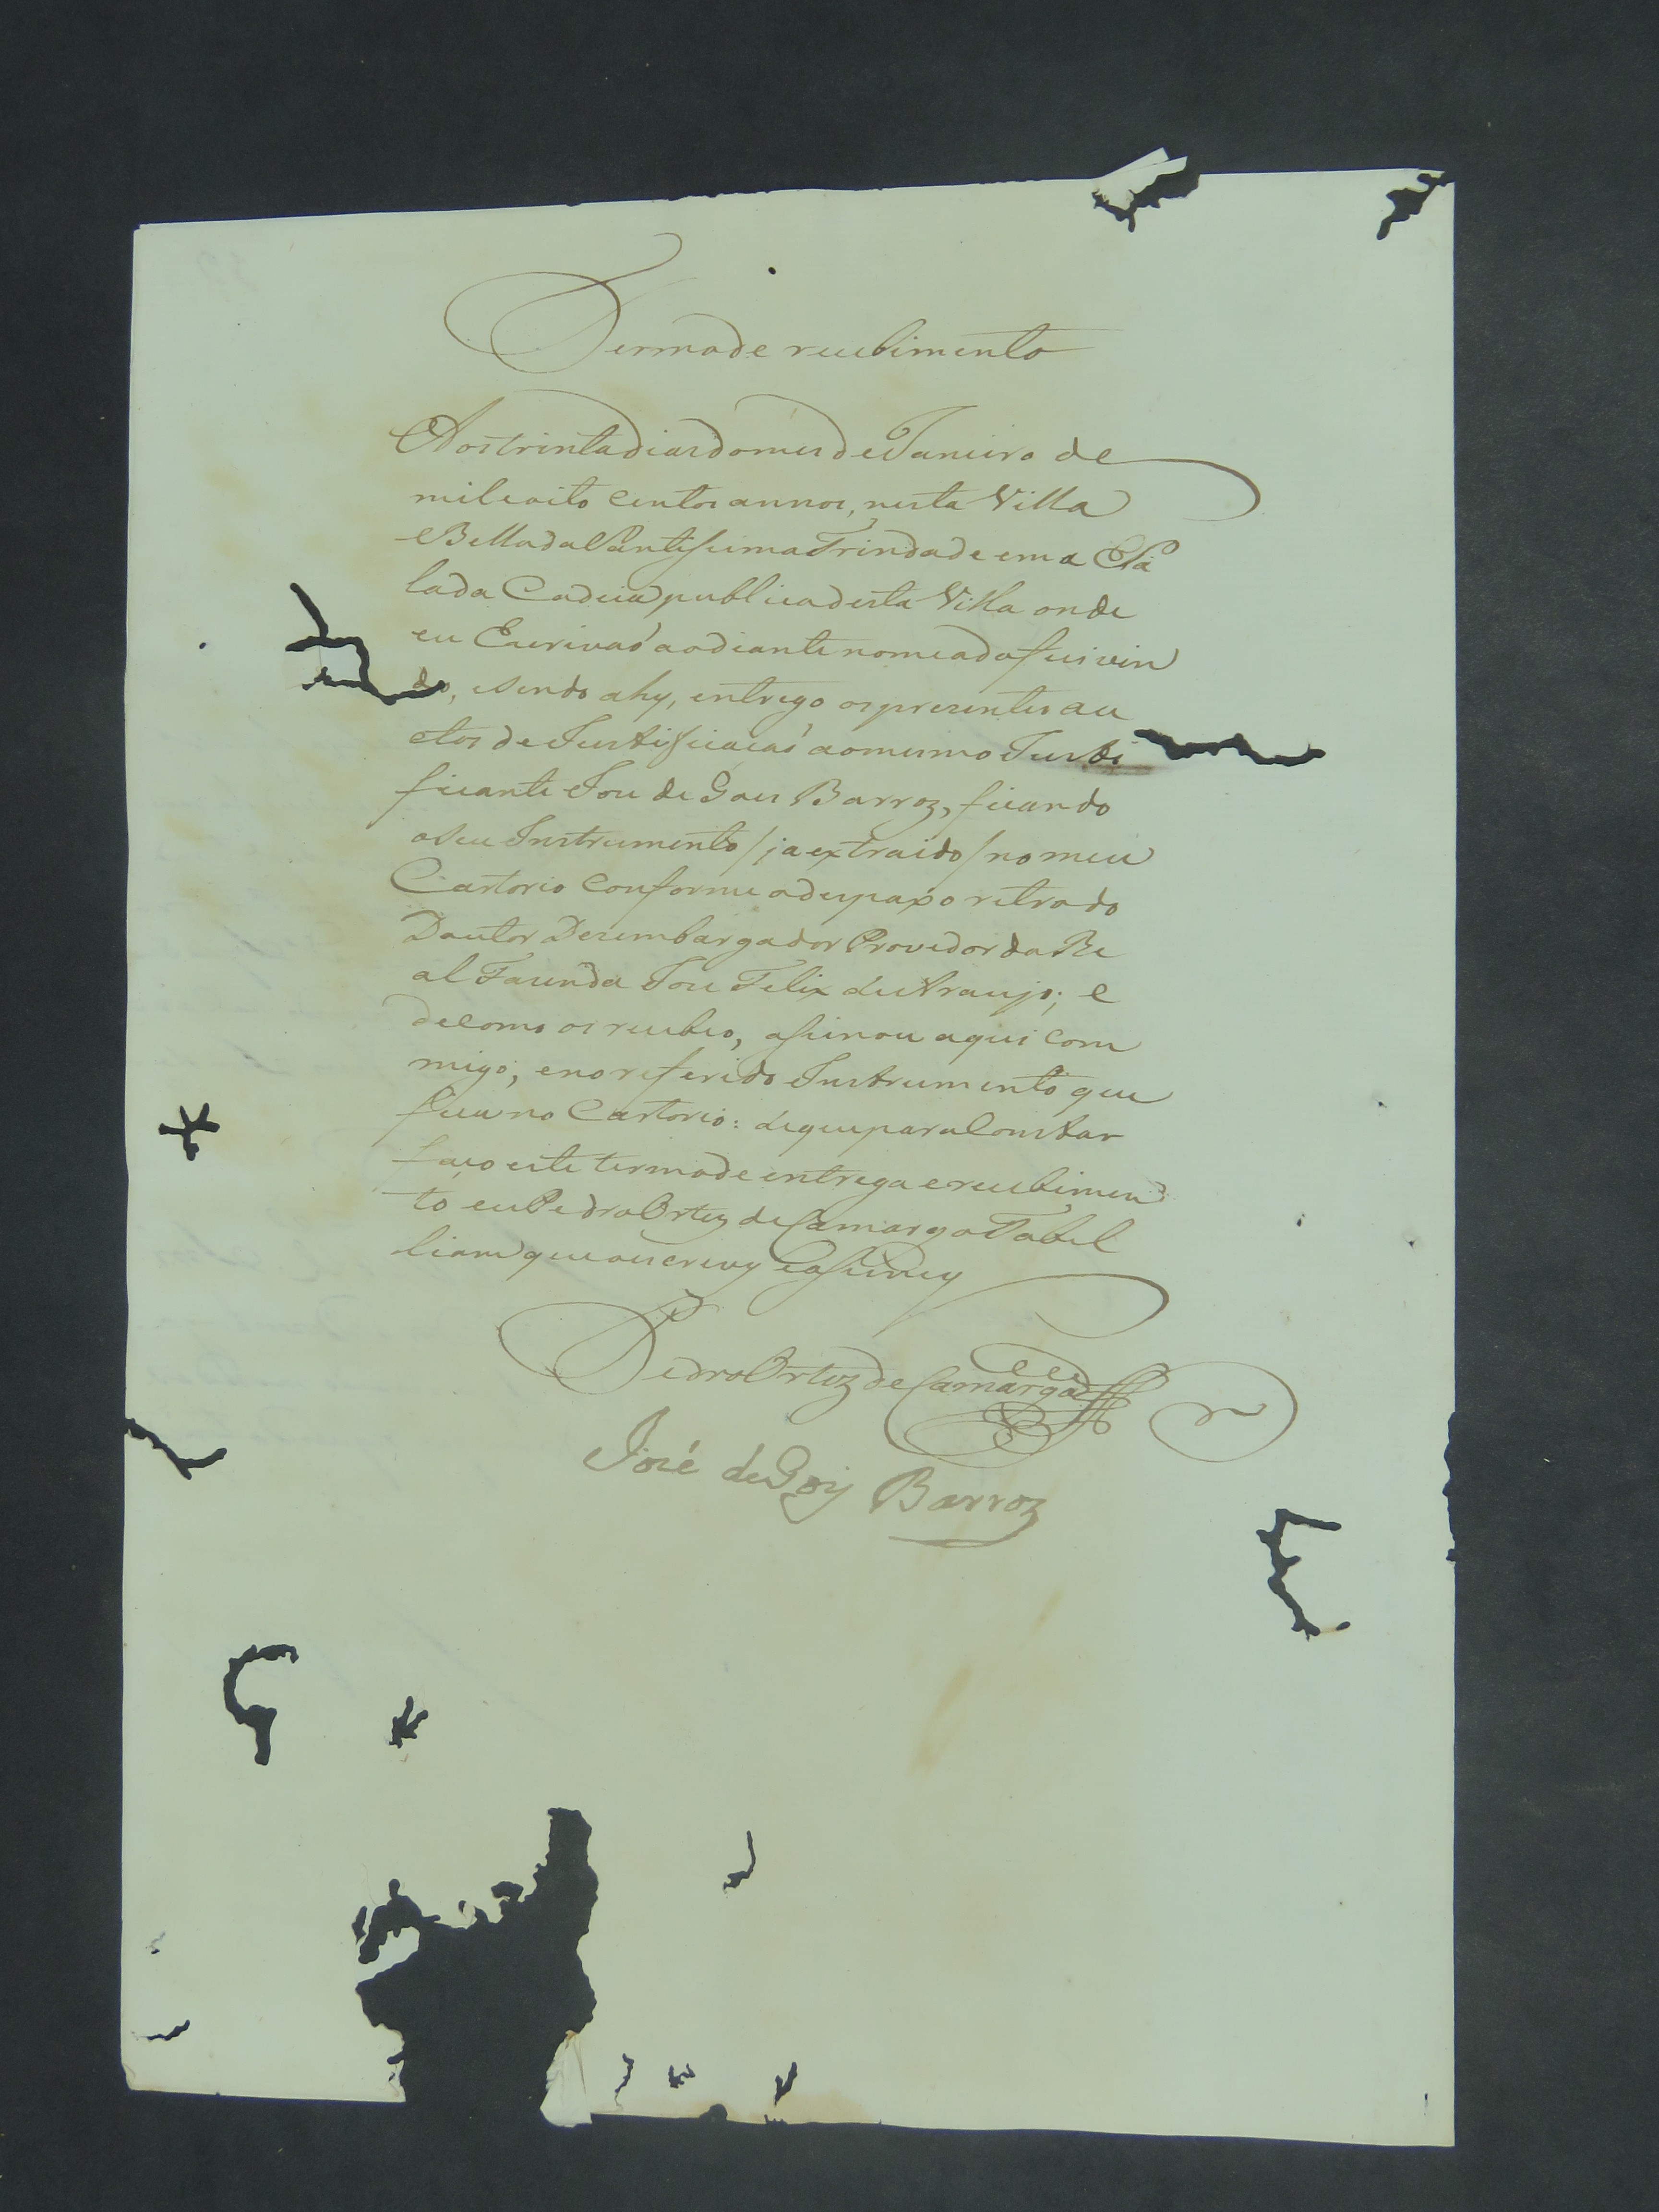 Termo de recebimento
Aos trinta dias do mes de Janeiro de
mil e oito centos annos, nesta Villa
Bella da Santissima Trindade em a Sa
la da Cadeia publica desta Villa onde
eu Escrivaõ ao diante nomeado fui vin
do, e sendo ahy, entrego os presentes au
ctos de Justificacaõ ao mesmo Justi
ficante Jose de Goes Barroz, ficando
o seu Instrumento / ja extraido / no meu
Cartorio conforme o despaxo retro do
Doutor Desembargador Provedor da Re
al Fazenda Jose Felix de Araujo; e
de como os recebeo, assinou aqui com
migo, e no referido Instrumento que
fica no Cartorio: de que para Constar
faço este termo de entrega e recebimen
to eu Pedro Ortiz de Camargo Tabel
liam que o escrevy e assiney
Pedro Ortiz de Camargo
José de Goiz Barroz